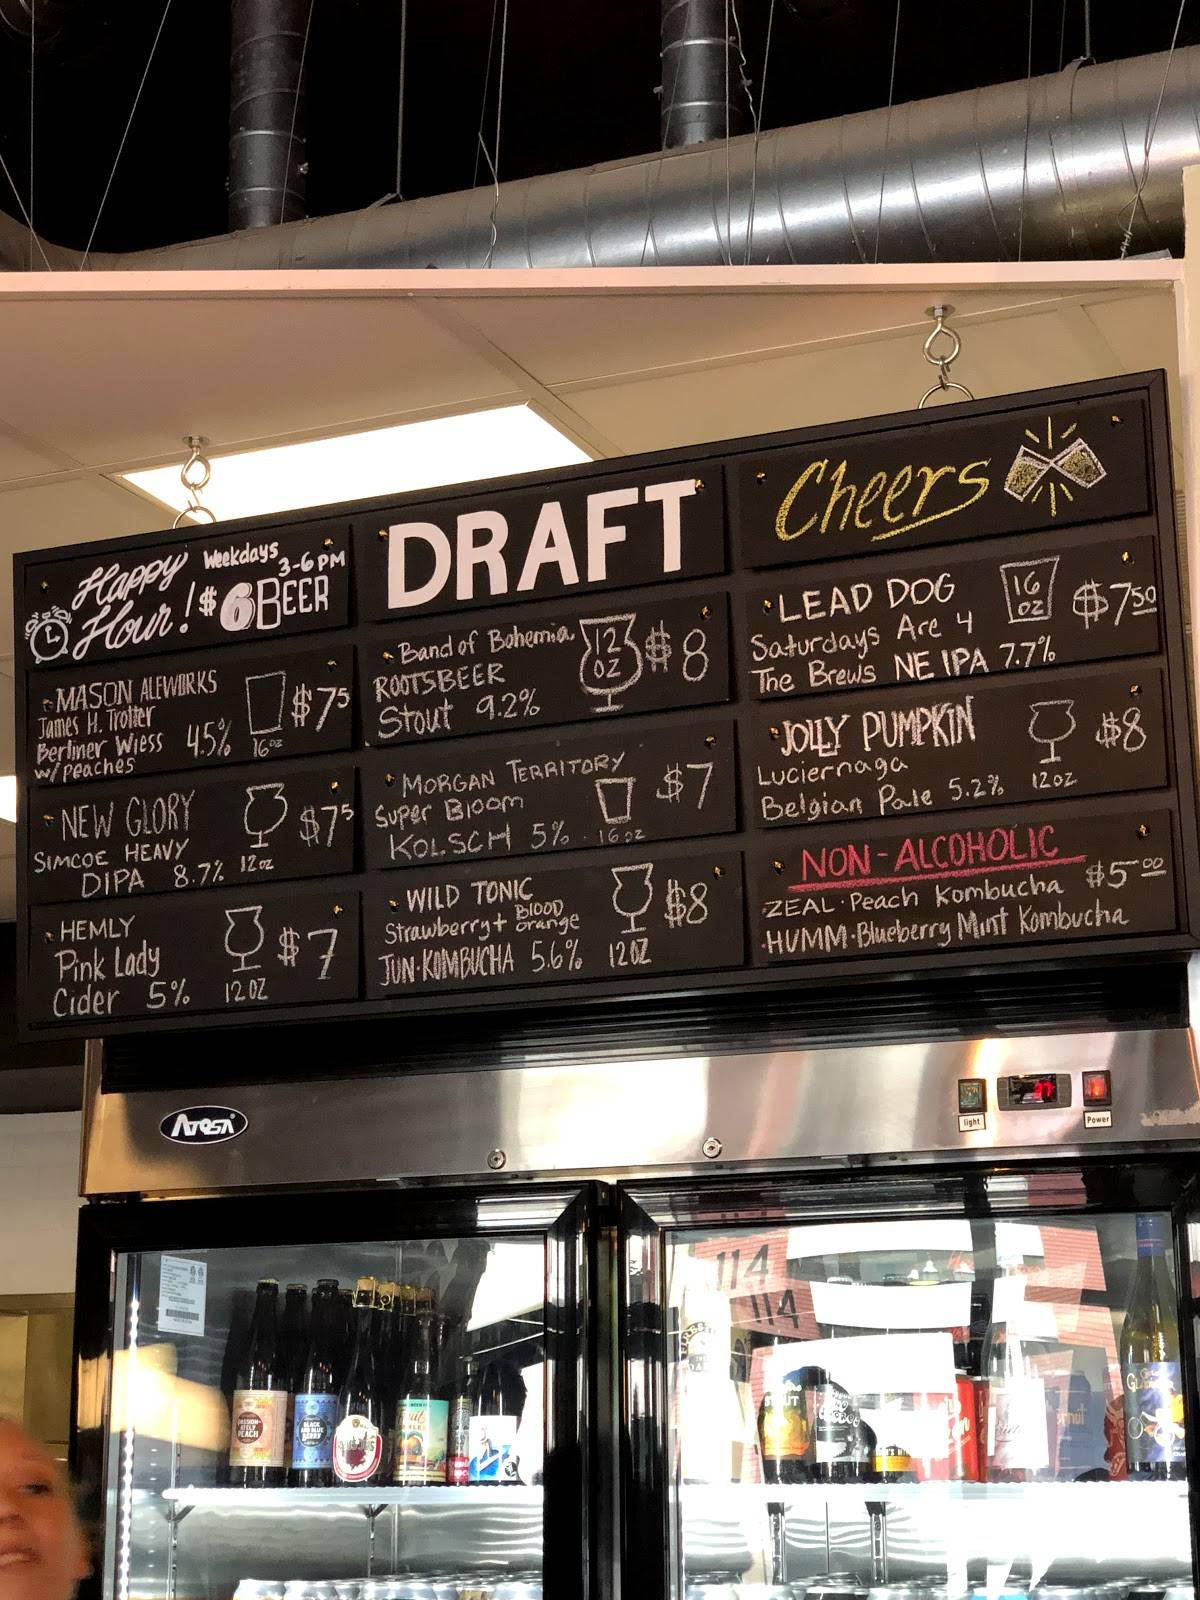 Happy Weekdays
Hour! 3-6 PM
$6 BEER
MASON ALEWORKS
James H. Trotter
Berliner Wiess 4.5%
w/peaches
16oz
$7⁵
NEW GLORY
SIMCOE HEAVY
DIPA 8.7%
12oz
$7⁵
HEMLY
Pink Lady
Cider 5%
12OZ
$7
DRAFT
Band of Bohemia
ROOTSBEER
Stout 9.2%
12
OZ
$8
MORGAN TERRITORY
Super Bloom
KOLSCH 5%
16oz
$7
WILD TONIC
Strawberry + BLOOD orange
JUN-KOMBUCHA 5.6%
12OZ
$8
Cheers
LEAD DOG
Saturdays Are 4
The Brews NE IPA 7.7%
16
OZ
$7⁵⁰
JOLLY PUMPKIN
Luciernaga
Belgian Pale 5.2%
12OZ
$8
NON-ALCOHOLIC
$5⁰⁰
ZEAL·Peach Kombucha
·HUMM·Blueberry Mint Kombucha
Atosa
light
Power
114
114
PEACH
BLACK
AND BLUE
BERRY
STOUT